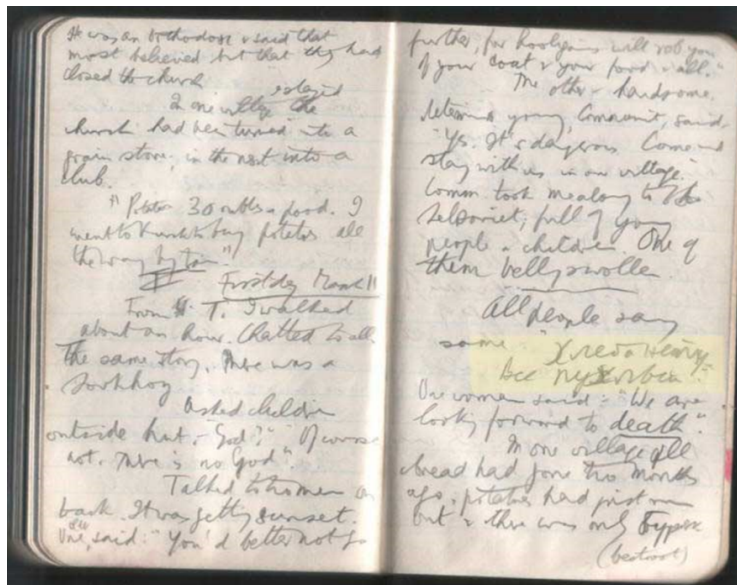 He was an orthodox & said that
most believed but that they had
closed the church
In one village the
church had been turned into a
grain store, in the next into a
club.
"Potatoes 30 roubles a pood. I
went to Kursk to buy potatoes all
the way by train."
First day March 11
From T. I walked
about an hour. Chatted to all.
The same story. There was a
Sovkhoz
Asked children
outside hut, "God?" "Of course
not. There is no God".
Talked to two men on
bank. It was getting sunset.
One, said: "You'd better not go
further, for hooligans will rob you
of your coat & your food & all."
The other a handsome,
young, Communist, said
"Yes. It's dangerous. Come and
stay with us in our village."
took me along to the
Selsoviet, full of young
people & children. One of
them belly swollen
All people say
same. "
Все пухлые.
One woman said: "We are
looking forward to death."
In one village all
bread had gone two months
ago, potatoes had just run
out & there was only буряк
(beetroot)